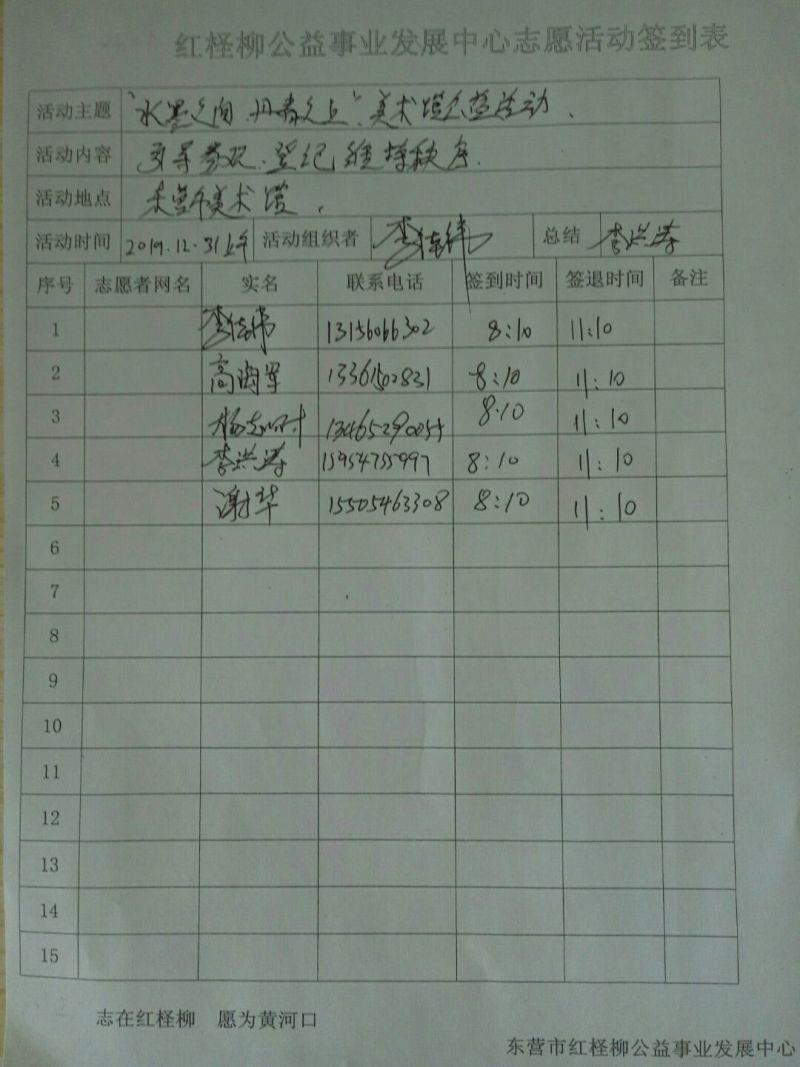 红柽柳公益事业发展中心志愿活动签到表
活动主题 "水墨之间 丹青之上"美术馆公益活动.
活动内容 登记 维持秩序.
活动地点 东营市美术馆.
活动时间 2019.12.31上午 活动组织者 总结 李洪涛
序号 志愿者网名 实名 联系电话 签到时间 签退时间 备注
1 13156066302 8:10 11:10
2 高陶军 13361502831 8:10 11:10
3 13465290055 8:10 11:10
4 李洪涛 15954755997 8:10 11:10
5 谢华 15505463308 8:10 11:10
6
7
8
9
10
11
12
13
14
15
志在红柽柳 愿为黄河口
东营市红柽柳公益事业发展中心